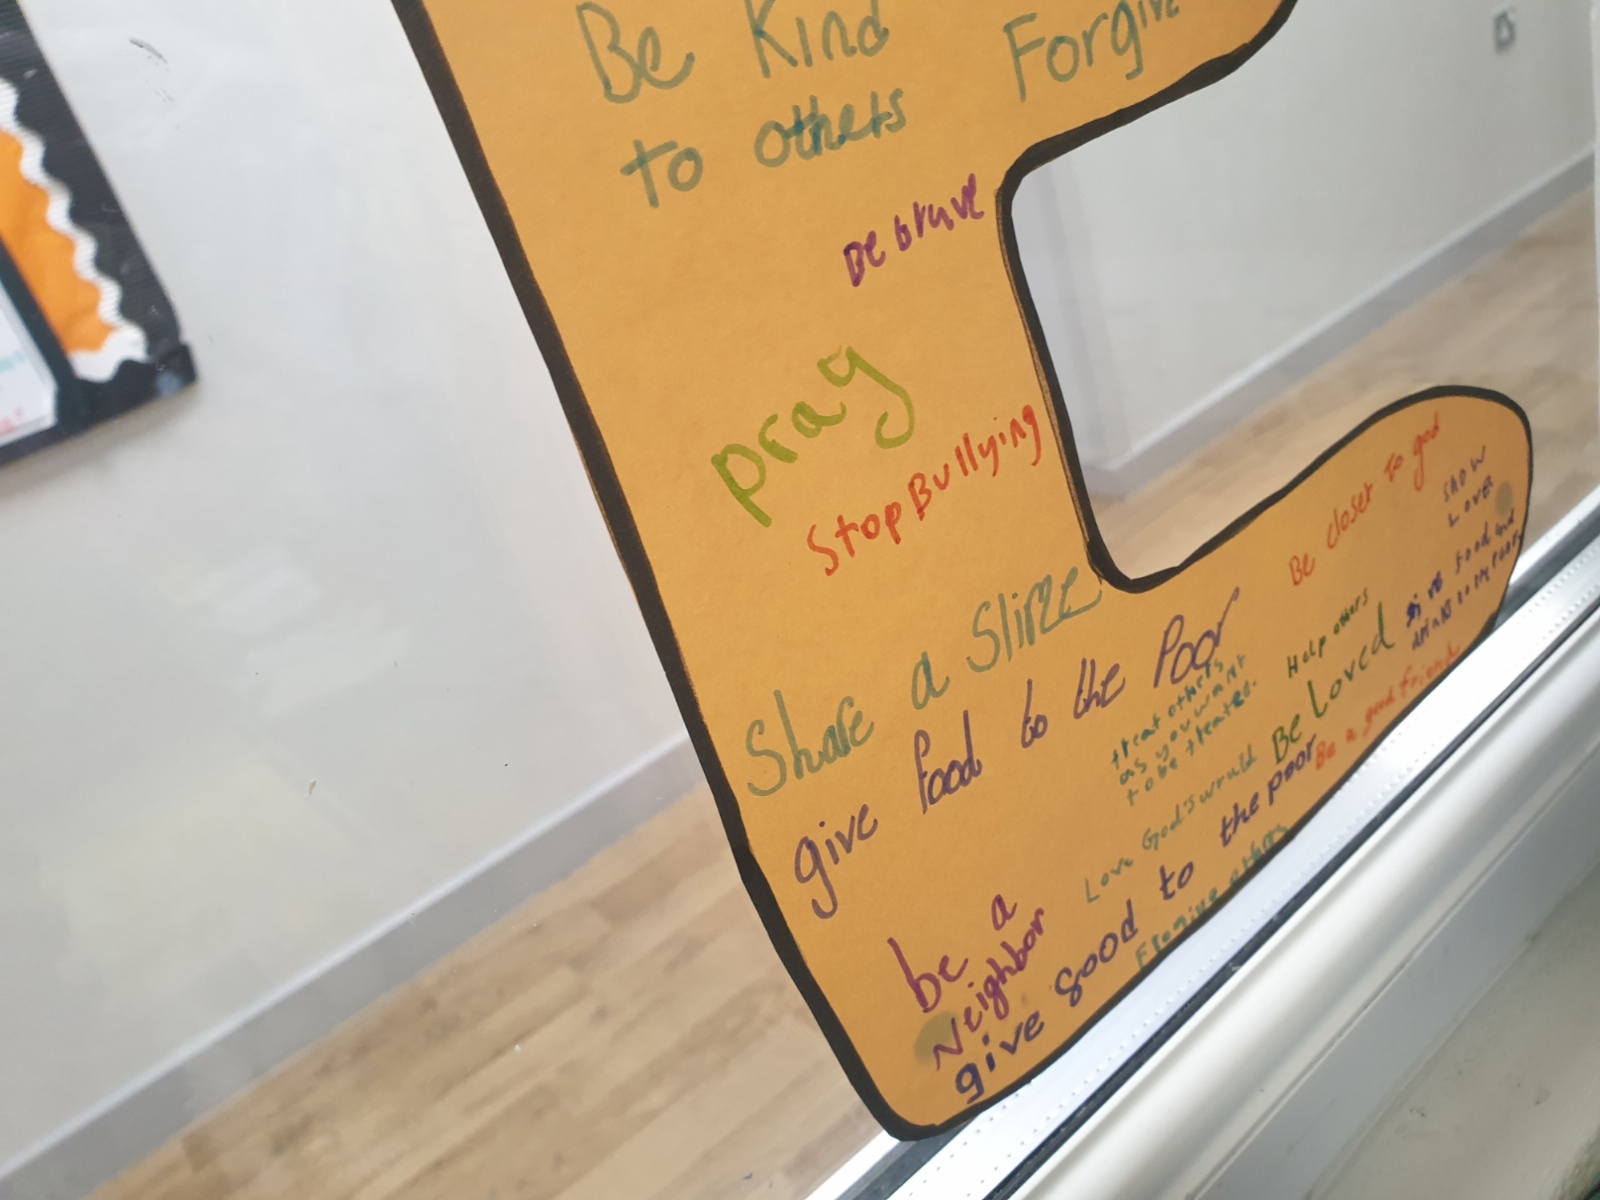 Be Kind
to others
Forgive
Be brave
pray
Stop Bullying
Share a Slize
give food to the Poor
Be closer to god
Show
Love
give food and
drinks to the poor
Help others
treat others
as you want
to be treated.
Be Loved
Be a good friend
Love God's wruld
be a
Neighbor
give good to the poor
Frogive others